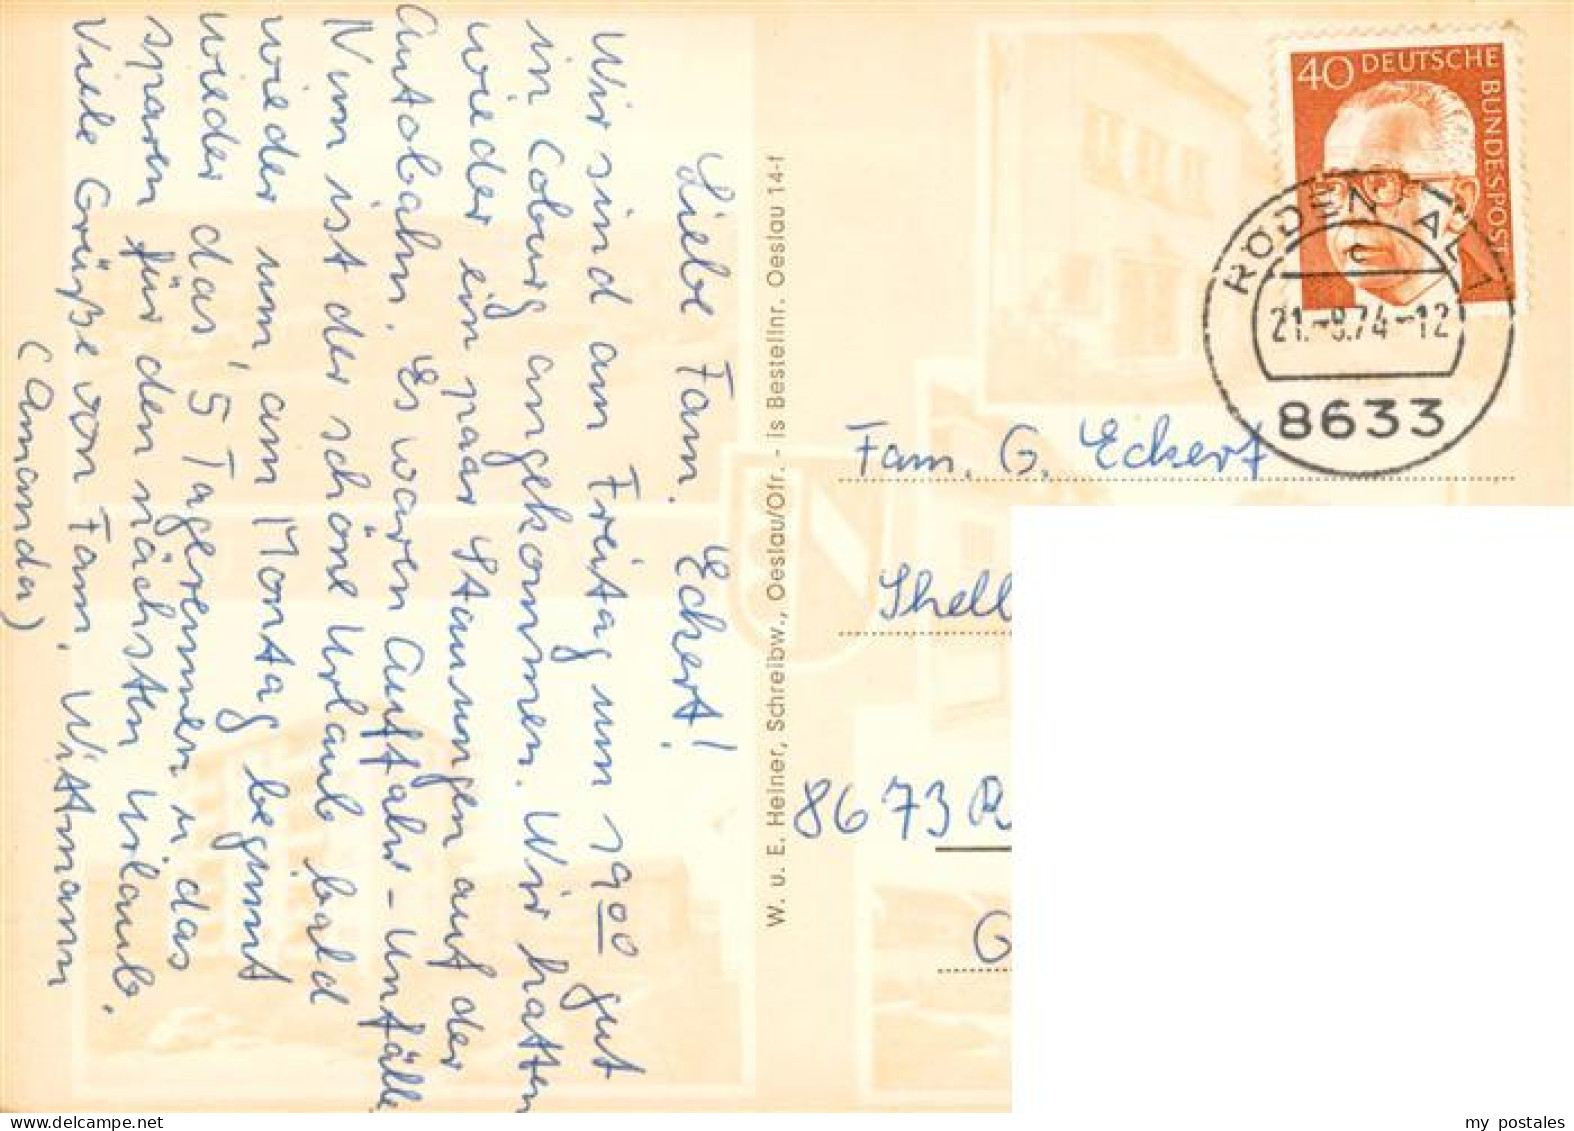 Liebe Fam. Eckert!
Wir sind am Freitag um 19 00 gut
in Coburg angekommen. Wir hatten
wieder ein paar Stauungen auf der
Autobahn. Es waren Auffahr-Unfälle
Nun ist der schöne Urlaub bald
wieder um, am Montag beginnt
wieder das 5 Tagerennen u das
sparen für den nächsten Urlaub.
Viele Grüße von Fam. Wittmann
(Amanda)
W. u. E. Heiner, Schreibw., Oeslau/Ofr. - is Bestellnr. Oeslau 14-f
40 DEUTSCHE
BUNDESPOST
RODENTAL 1
c
21.-8.74-12
8633
Fam. G. Eckert
Shell
8673 R
G
my postales